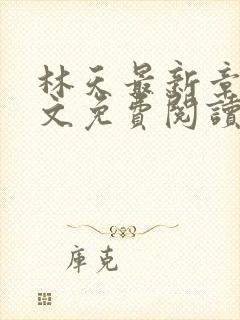 林天最新章
文免費閱讀
庫克